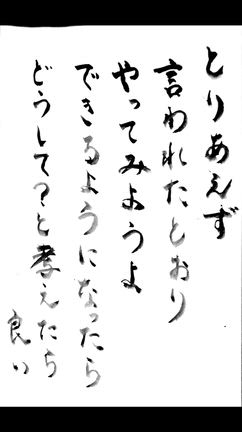 とりあえず
言われたとおり
やってみようよ
できるようになったら
どうして?と考えたら
良い